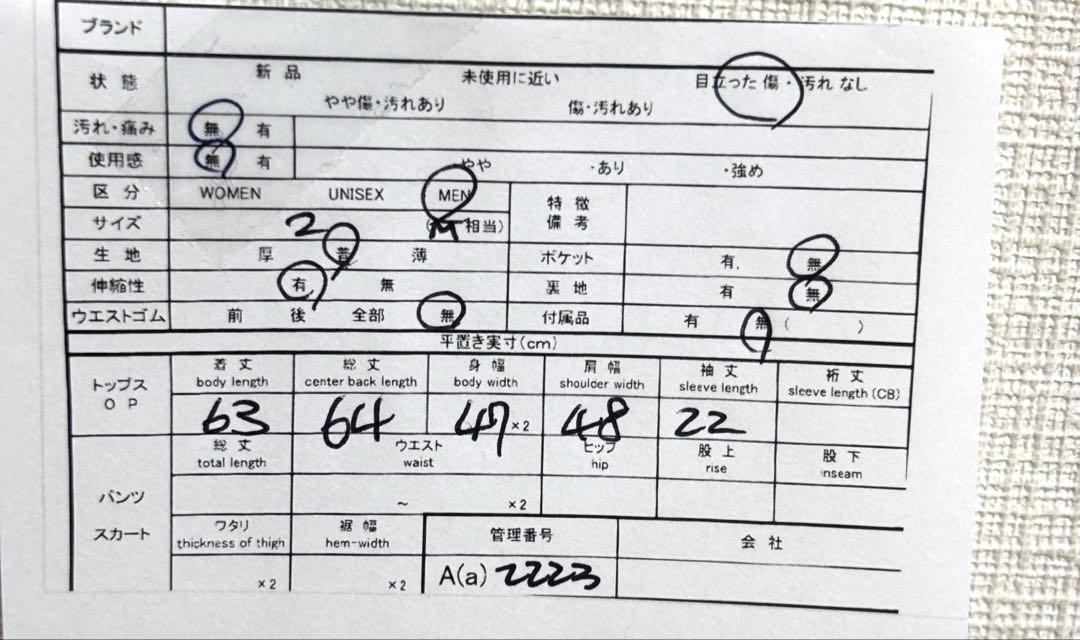 ブランド
状態 新品 未使用に近い 目立った傷・汚れなし
やや傷・汚れあり 傷・汚れあり
汚れ・痛み 無 有
使用感 無 有 やや ・あり ・強め
区分 WOMEN UNISEX MEN 特徴備考
サイズ 2 (M 相当)
生地 厚 普 薄 ポケット 有. 無
伸縮性 有 無 裏地 有 無
ウエストゴム 前 後 全部 無 付属品 有 無 ( )
平置き実寸(cm)
トップス OP 着丈 総丈 身幅 肩幅 袖丈 裄丈
body length center back length body width shoulder width sleeve length sleeve length (CB)
63 64 47 ×2 48 22
総丈 ウエスト ヒップ 股上 股下
total length waist hip rise inseam
パンツ ~ ×2
スカート ワタリ 裾幅 管理番号 会社
thickness of thigh hem-width
×2 ×2 A(a) 2223